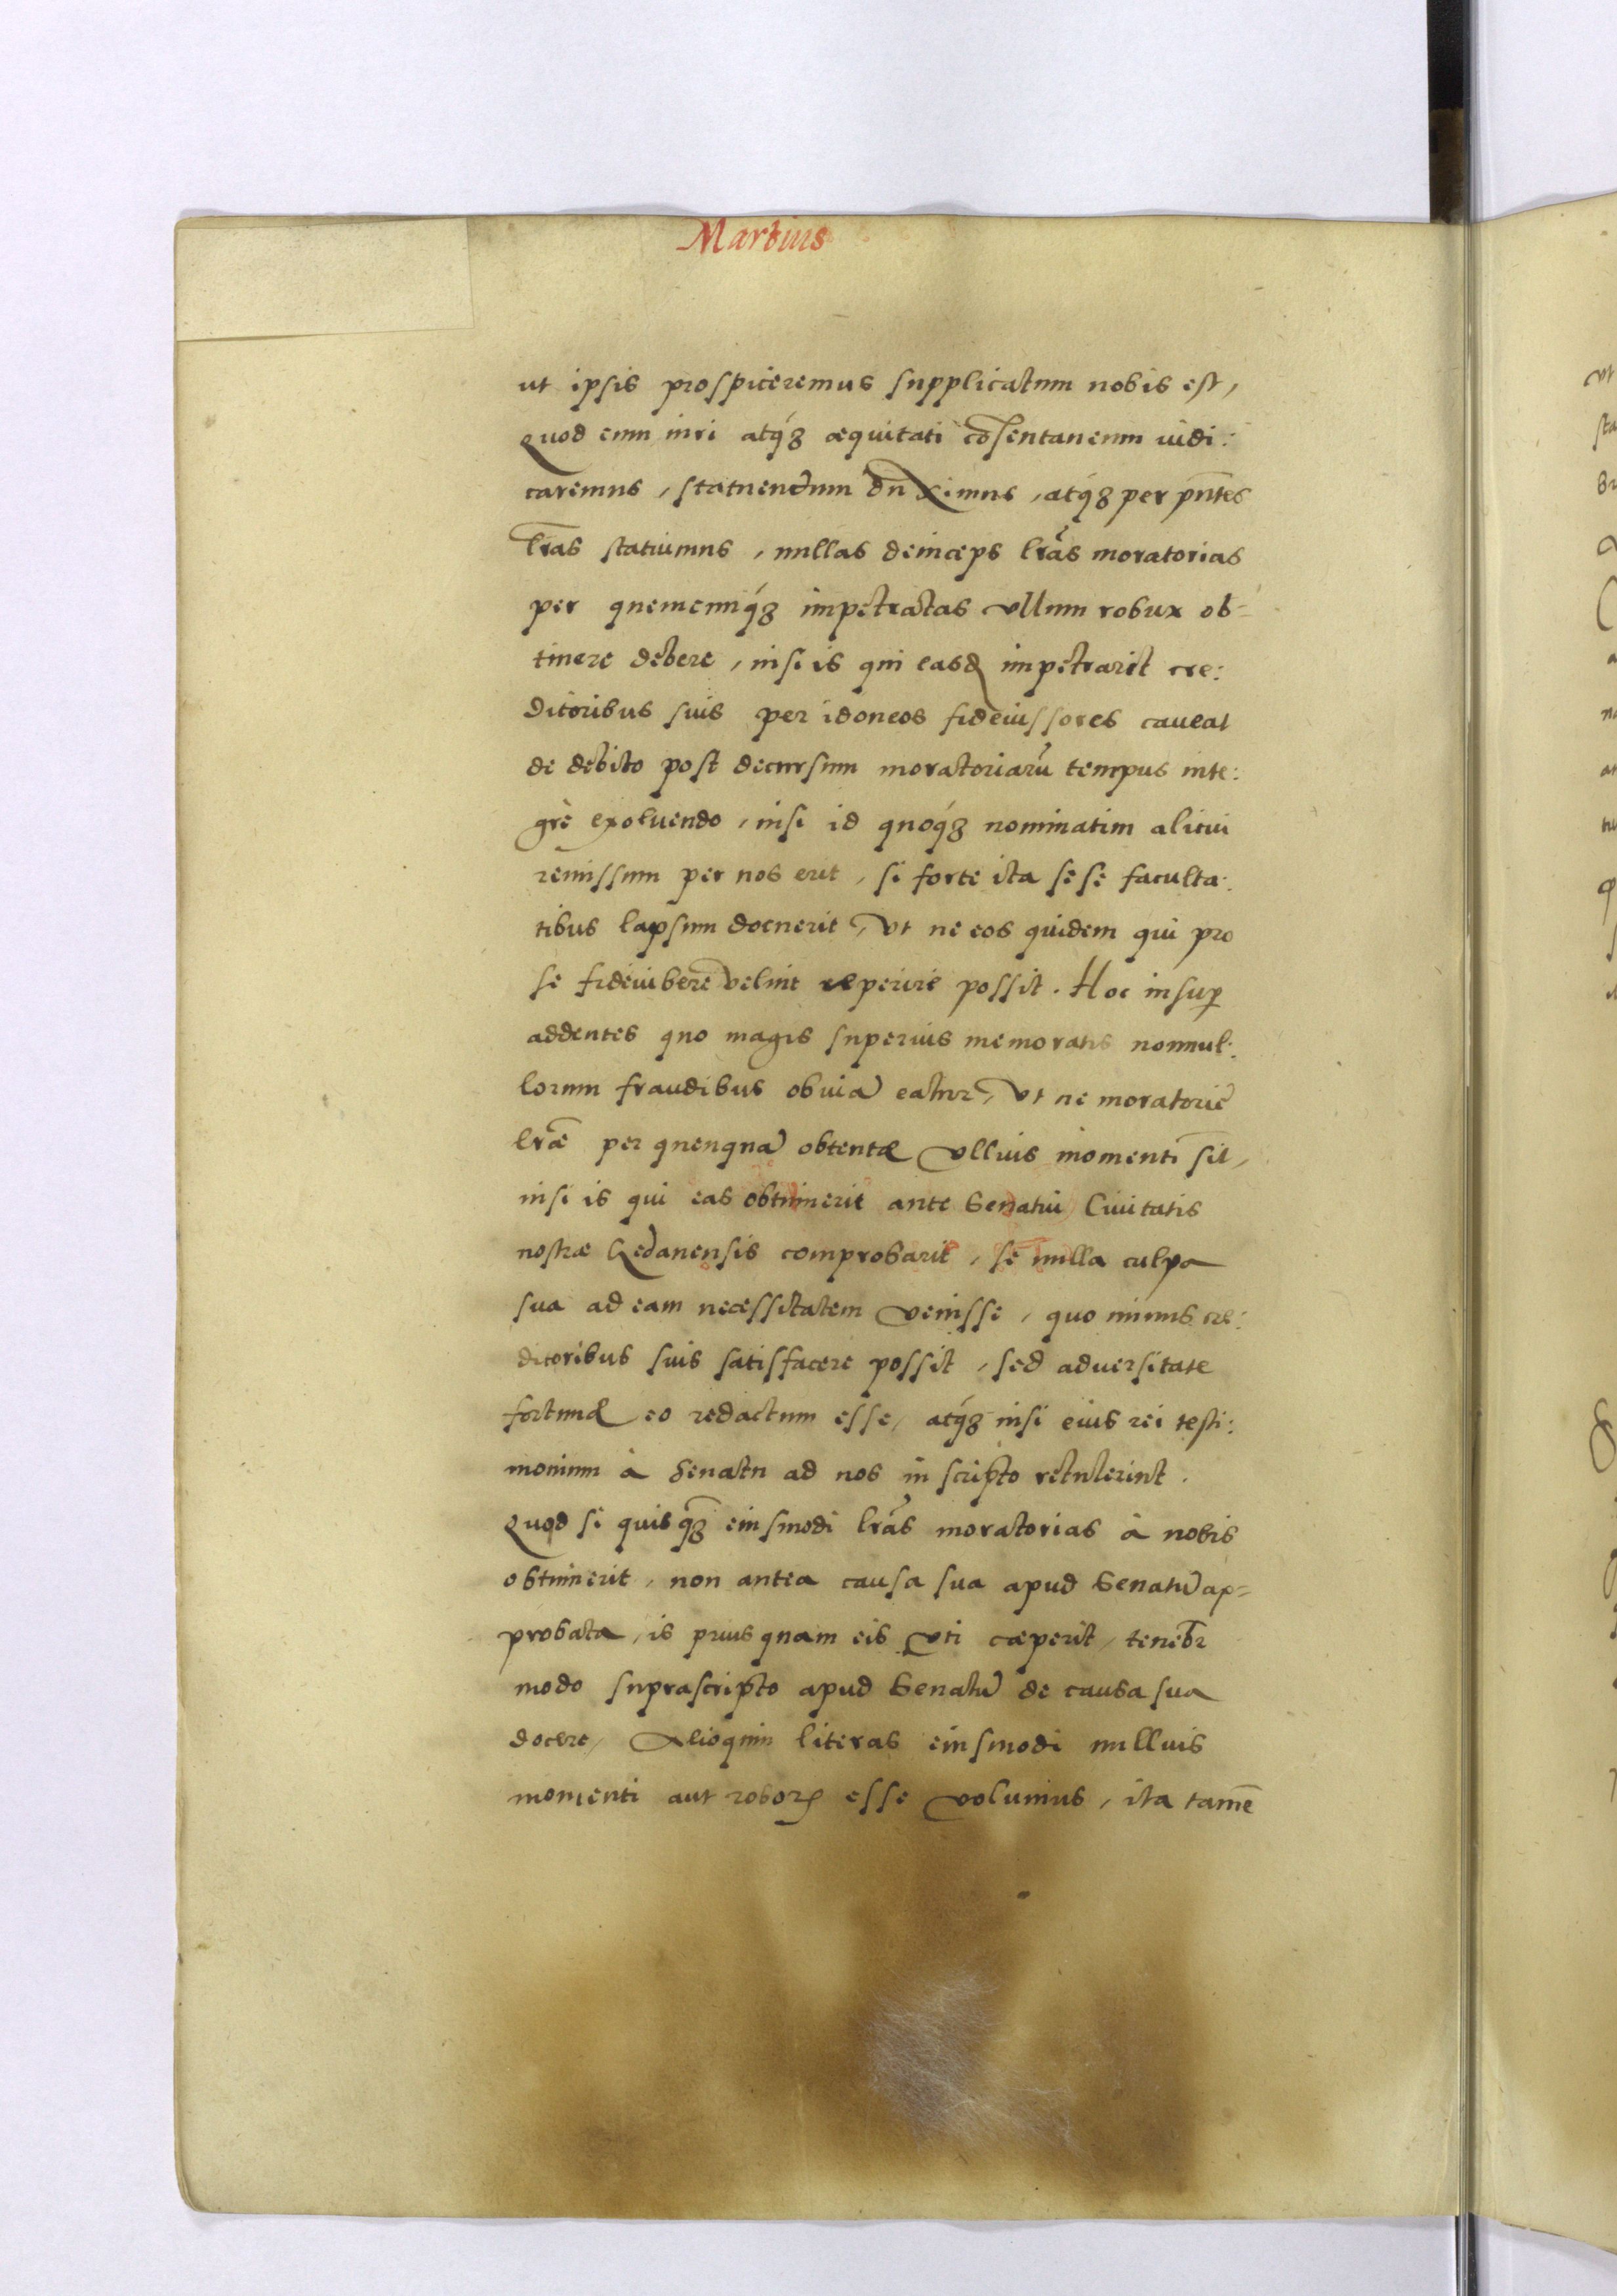 Martius
ut ipsis prospiceremus supplicatum nobis est,
Quod cum iuri atq́ꝫ æquitati cōsentaneum iudi:
caremus, statuendum dūximus, atq́ꝫ per pn̄tes
lr̄as statuimus, nullas deinceps lr̄as moratorias
per quemcunq́ꝫ impetratas vllum robur ob=
tinere debere, nisi is qui easd impetrarit cre:
ditoribus suis per idoneos fideiussores caveat
de debito post decursum moratoriarū tempus inte:
grè exoluendo, nisi id quoq́ꝫ nominatim alicui
remissum per nos erit, si forte ita sese faculta:
tibus lapsum docuerit, vt ne eos quidem qui pro
se fideiubere velint reperire possit. Hoc insuꝑ
addentes quo magis superius memoratis nonnul:
lorum fraudibus obviā eatur, vt ne moratorie
lr̄æ per quenquā obtentæ vllius momenti sit,
nisi is qui eas obtinuerit ante Senatū Civitatis
nostræ Gedanensis comprobarit, se nulla culpa
sua ad eam necessitatem venisse, quo minus cre:
ditoribus suis satisfacere possit, sed adversitate
fortunæ eo redactum esse, atq́ꝫ nisi eius rei testi:
monium à Senatu ad nos in scripto retulerint.
Quod si quisq̄ꝫ eiusmodi lr̄as moratorias à nobis
obtinuerit, non antea causa sua apud Senatū ap=
probata, is prius quam eis vti cæperit, teneb̄r
modo suprascripto apud Senatū de causa sua
docere, Alioquin literas eiusmodi nullius
momenti aut roboꝶ esse volumus, ita tamē